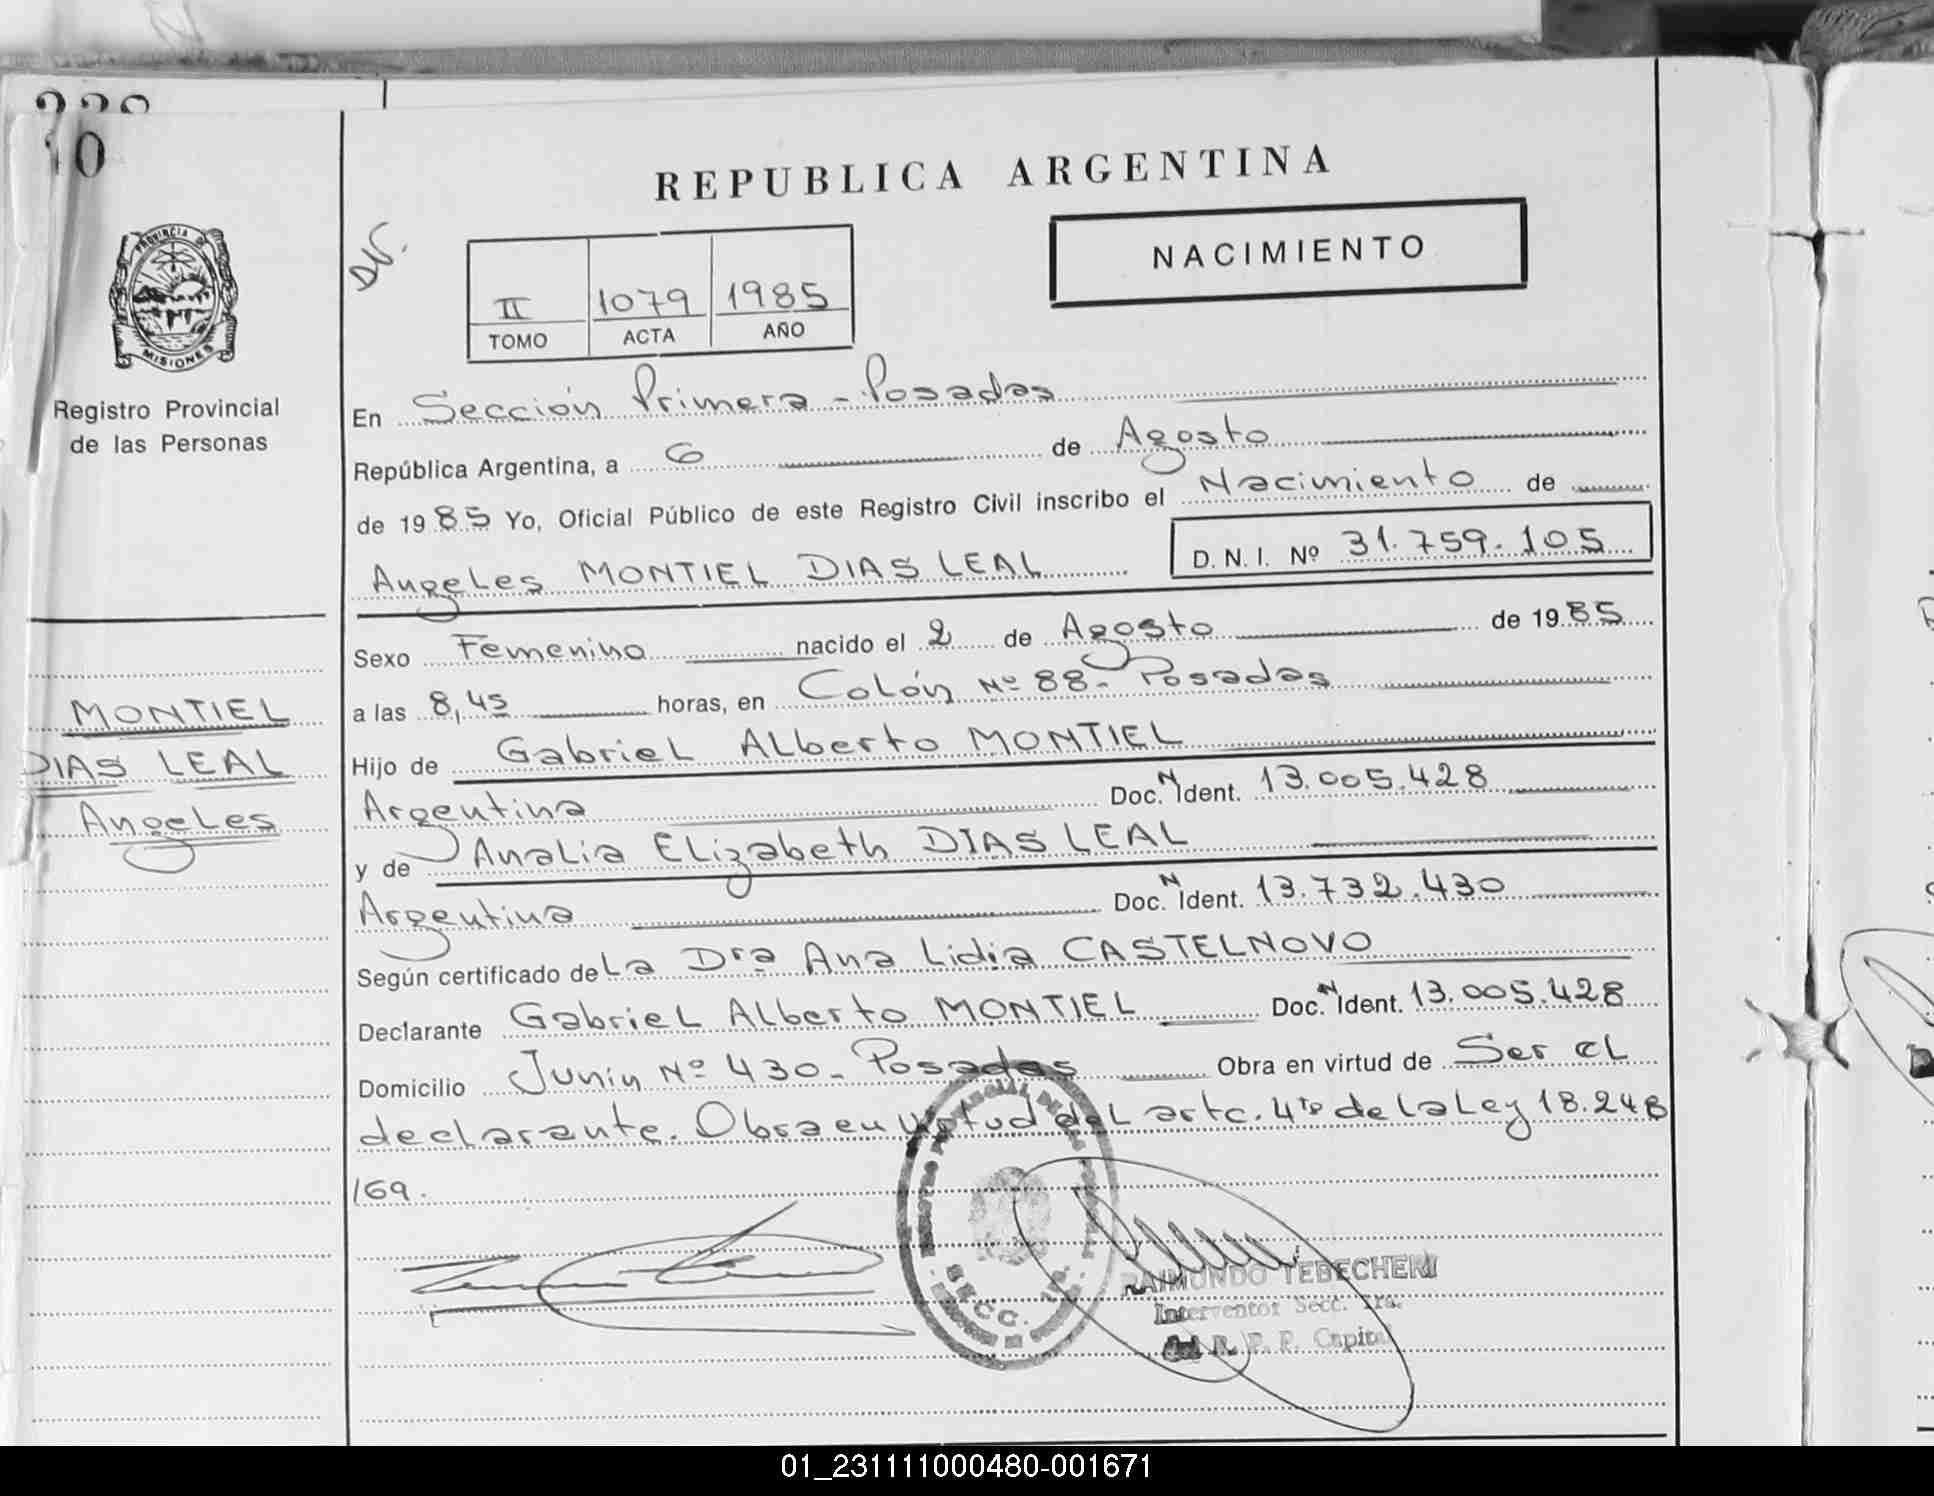 10
REPUBLICA ARGENTINA
PROVINCIA D
MISIONES
Registro Provincial
de las Personas
II 1079 1985
TOMO ACTA AÑO
NACIMIENTO
En Sección Primera - Posadas
República Argentina, a 6 de Agosto
de 1985 Yo, Oficial Público de este Registro Civil inscribo el Nacimiento de
Angeles MONTIEL DIAS LEAL D.N.I. Nº 31.759.105
Sexo Femenino nacido el 2 de Agosto de 1985
a las 8,45 horas, en Colón Nº 88- Posadas
Hijo de Gabriel Alberto MONTIEL
Argentina Doc. N Ident. 13.005.428
y de Analia Elizabeth DIAS LEAL
Argentina Doc. N Ident. 13.732.430
Según certificado de La Dra Ana Lidia CASTELNOVO
Declarante Gabriel Alberto MONTIEL Doc. N Ident. 13.005.428
Domicilio Junín Nº 430- Posadas Obra en virtud de Ser el
declarante. Obra en virtud del artc. 4to de la Ley 18.248
/69.
MONTIEL
DIAS LEAL
Angeles
SECC. 1ra.
RAIMUNDO TEBECHERI
Interventor Secc. 1ra.
del R. P. P. Capital
01_231111000480-001671